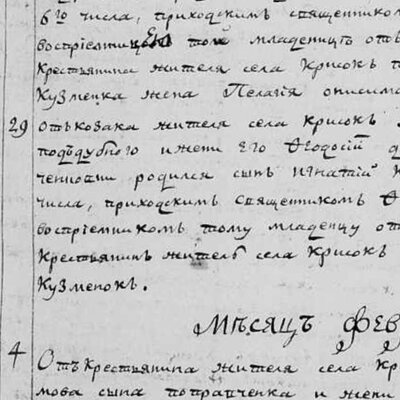 6го числа, приходскимъ священником
воспрїемницею той младеницѣ отъ
Крестьянина жителя села Крисокъ
Кузменка жена Пелагїя
29 отъ козака жителя села Крисокъ
подъдубного и жени его Ѳеодосїи
родился сынъ Игнатїй
числа, приходскимъ священникомъ Ѳ
воспрїемникомъ тому младенцу от
Крестьянинъ житель села Крисокъ
Кузменокъ.
Мѣсяцъ Фев
4 Отъ Крестьянина жителя села Кр
мова сына попраченка и жени